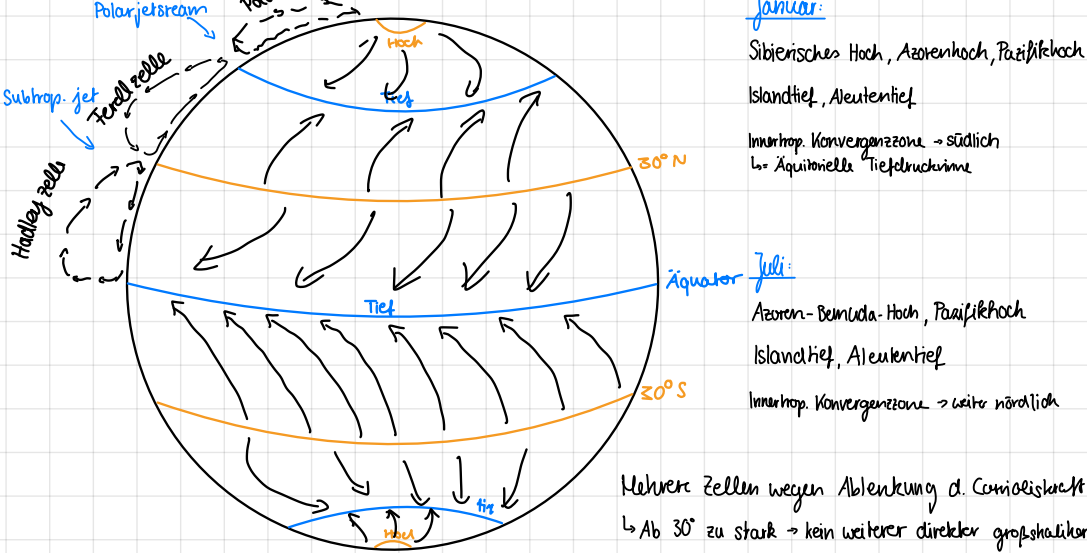 Polarjetstream
Subtrop. jet
Ferellzelle
Hadleyzelle
Hoch
Tief
30°N
Äquator
Tief
30°S
Hoch
Januar:
Sibierisches Hoch, Azorenhoch, Pazifikhoch
Islandtief, Aleutentief
Innertrop. Konvergenzzone → südlich
↳ = Äquitorielle Tiefdruckrinne
Juli:
Azoren-Bermuda-Hoch, Pazifikhoch
Islandtief, Aleutentief
Innertrop. Konvergenzzone → weiter nördlich
Mehrere Zellen wegen Ablenkung d. Corrioliskraft
↳ Ab 30° zu stark → kein weiterer direkter